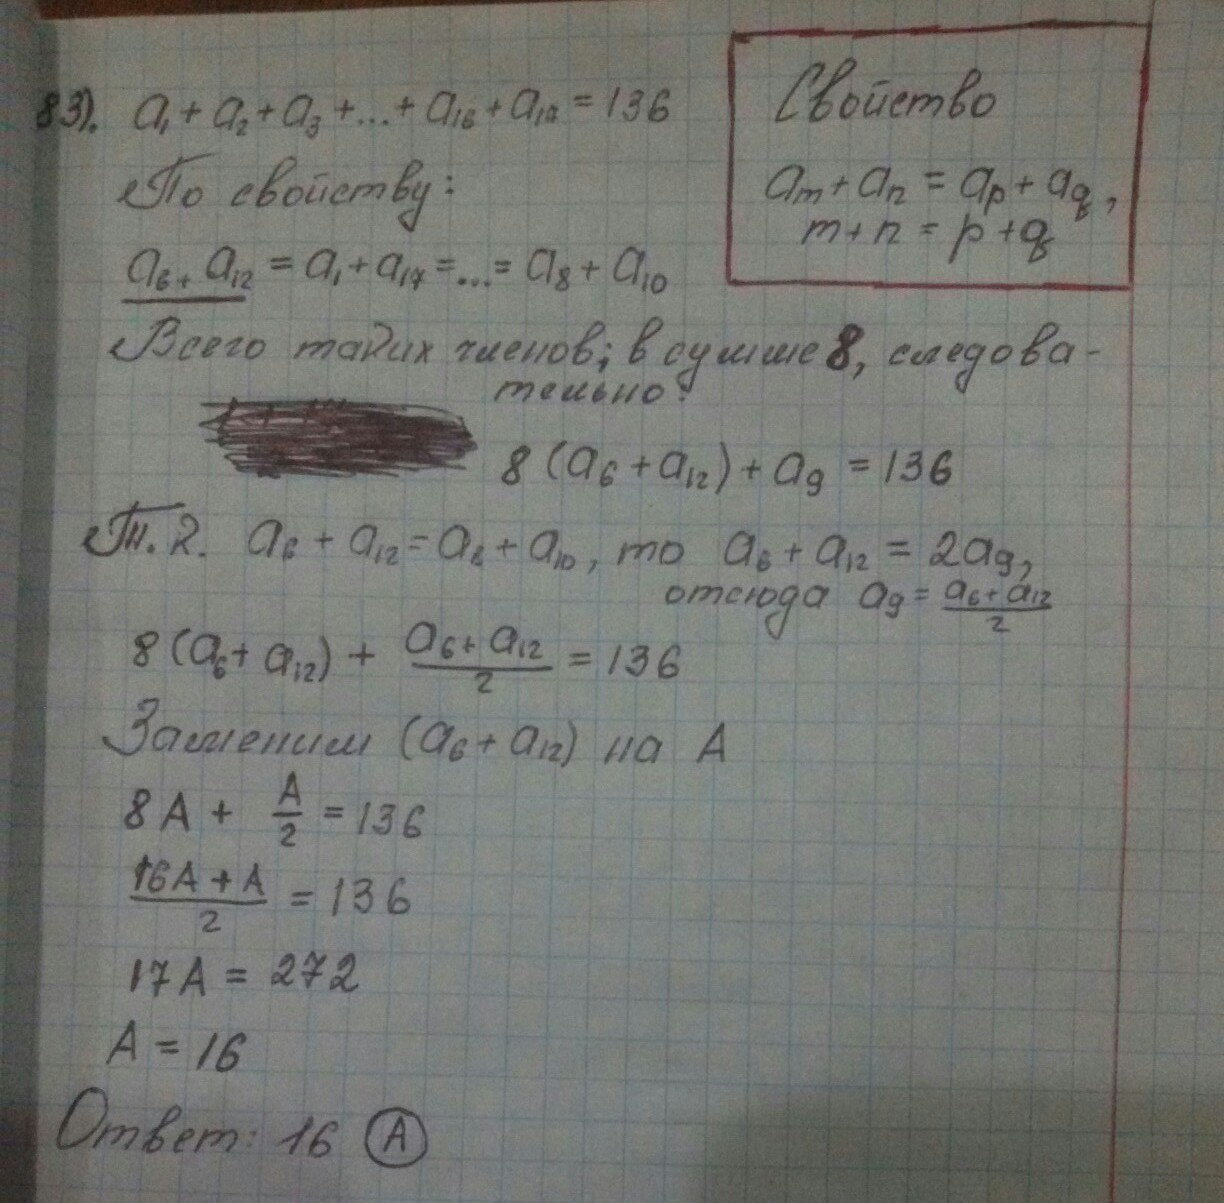 83). a₁ + a₂ + a₃ + ... + a₁₆ + a₁₇ = 136
По свойству:
a₆ + a₁₂ = a₁ + a₁₇ = ... = a₈ + a₁₀
Свойство
aₘ + aₙ = aₚ + a_q,
m + n = p + q
Всего таких членов; в сумме 8, следова-
тельно:
8 (a₆ + a₁₂) + a₉ = 136
Т.к. a₆ + a₁₂ = a₈ + a₁₀, то a₆ + a₁₂ = 2a₉,
отсюда a₉ = (a₆ + a₁₂)/2
8 (a₆ + a₁₂) + (a₆ + a₁₂)/2 = 136
Заменим (a₆ + a₁₂) на A
8A + A/2 = 136
(16A + A)/2 = 136
17A = 272
A = 16
Ответ: 16 (A)